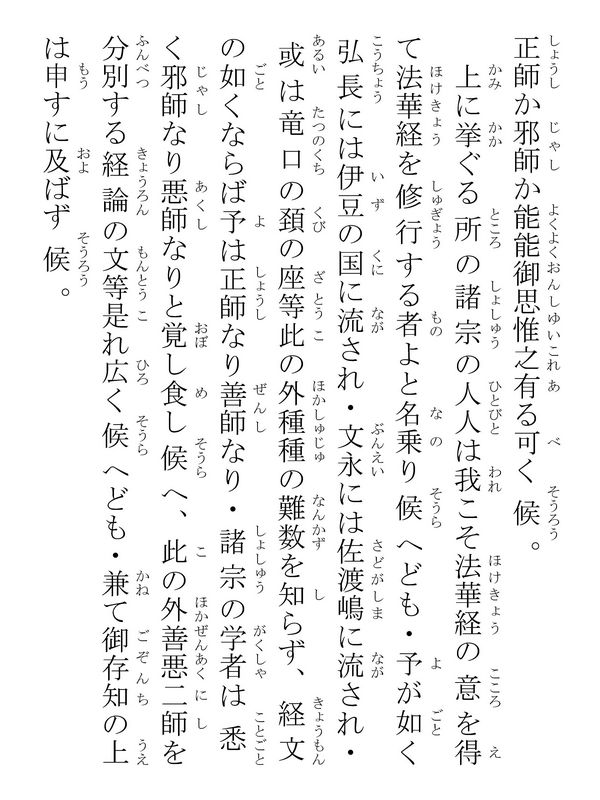 正師か邪師か能能御思惟之有る可く候。
上に挙ぐる所の諸宗の人人は我こそ法華経の意を得
て法華経を修行する者よと名乗り候へども・予が如く
弘長には伊豆の国に流され・文永には佐渡嶋に流され・
或は竜口の頚の座等此の外種種の難数を知らず、経文
の如くならば予は正師なり善師なり・諸宗の学者は悉
く邪師なり悪師なりと覚し食し候へ、此の外善悪二師を
分別する経論の文等是れ広く候へども・兼て御存知の上
は申すに及ばず候。